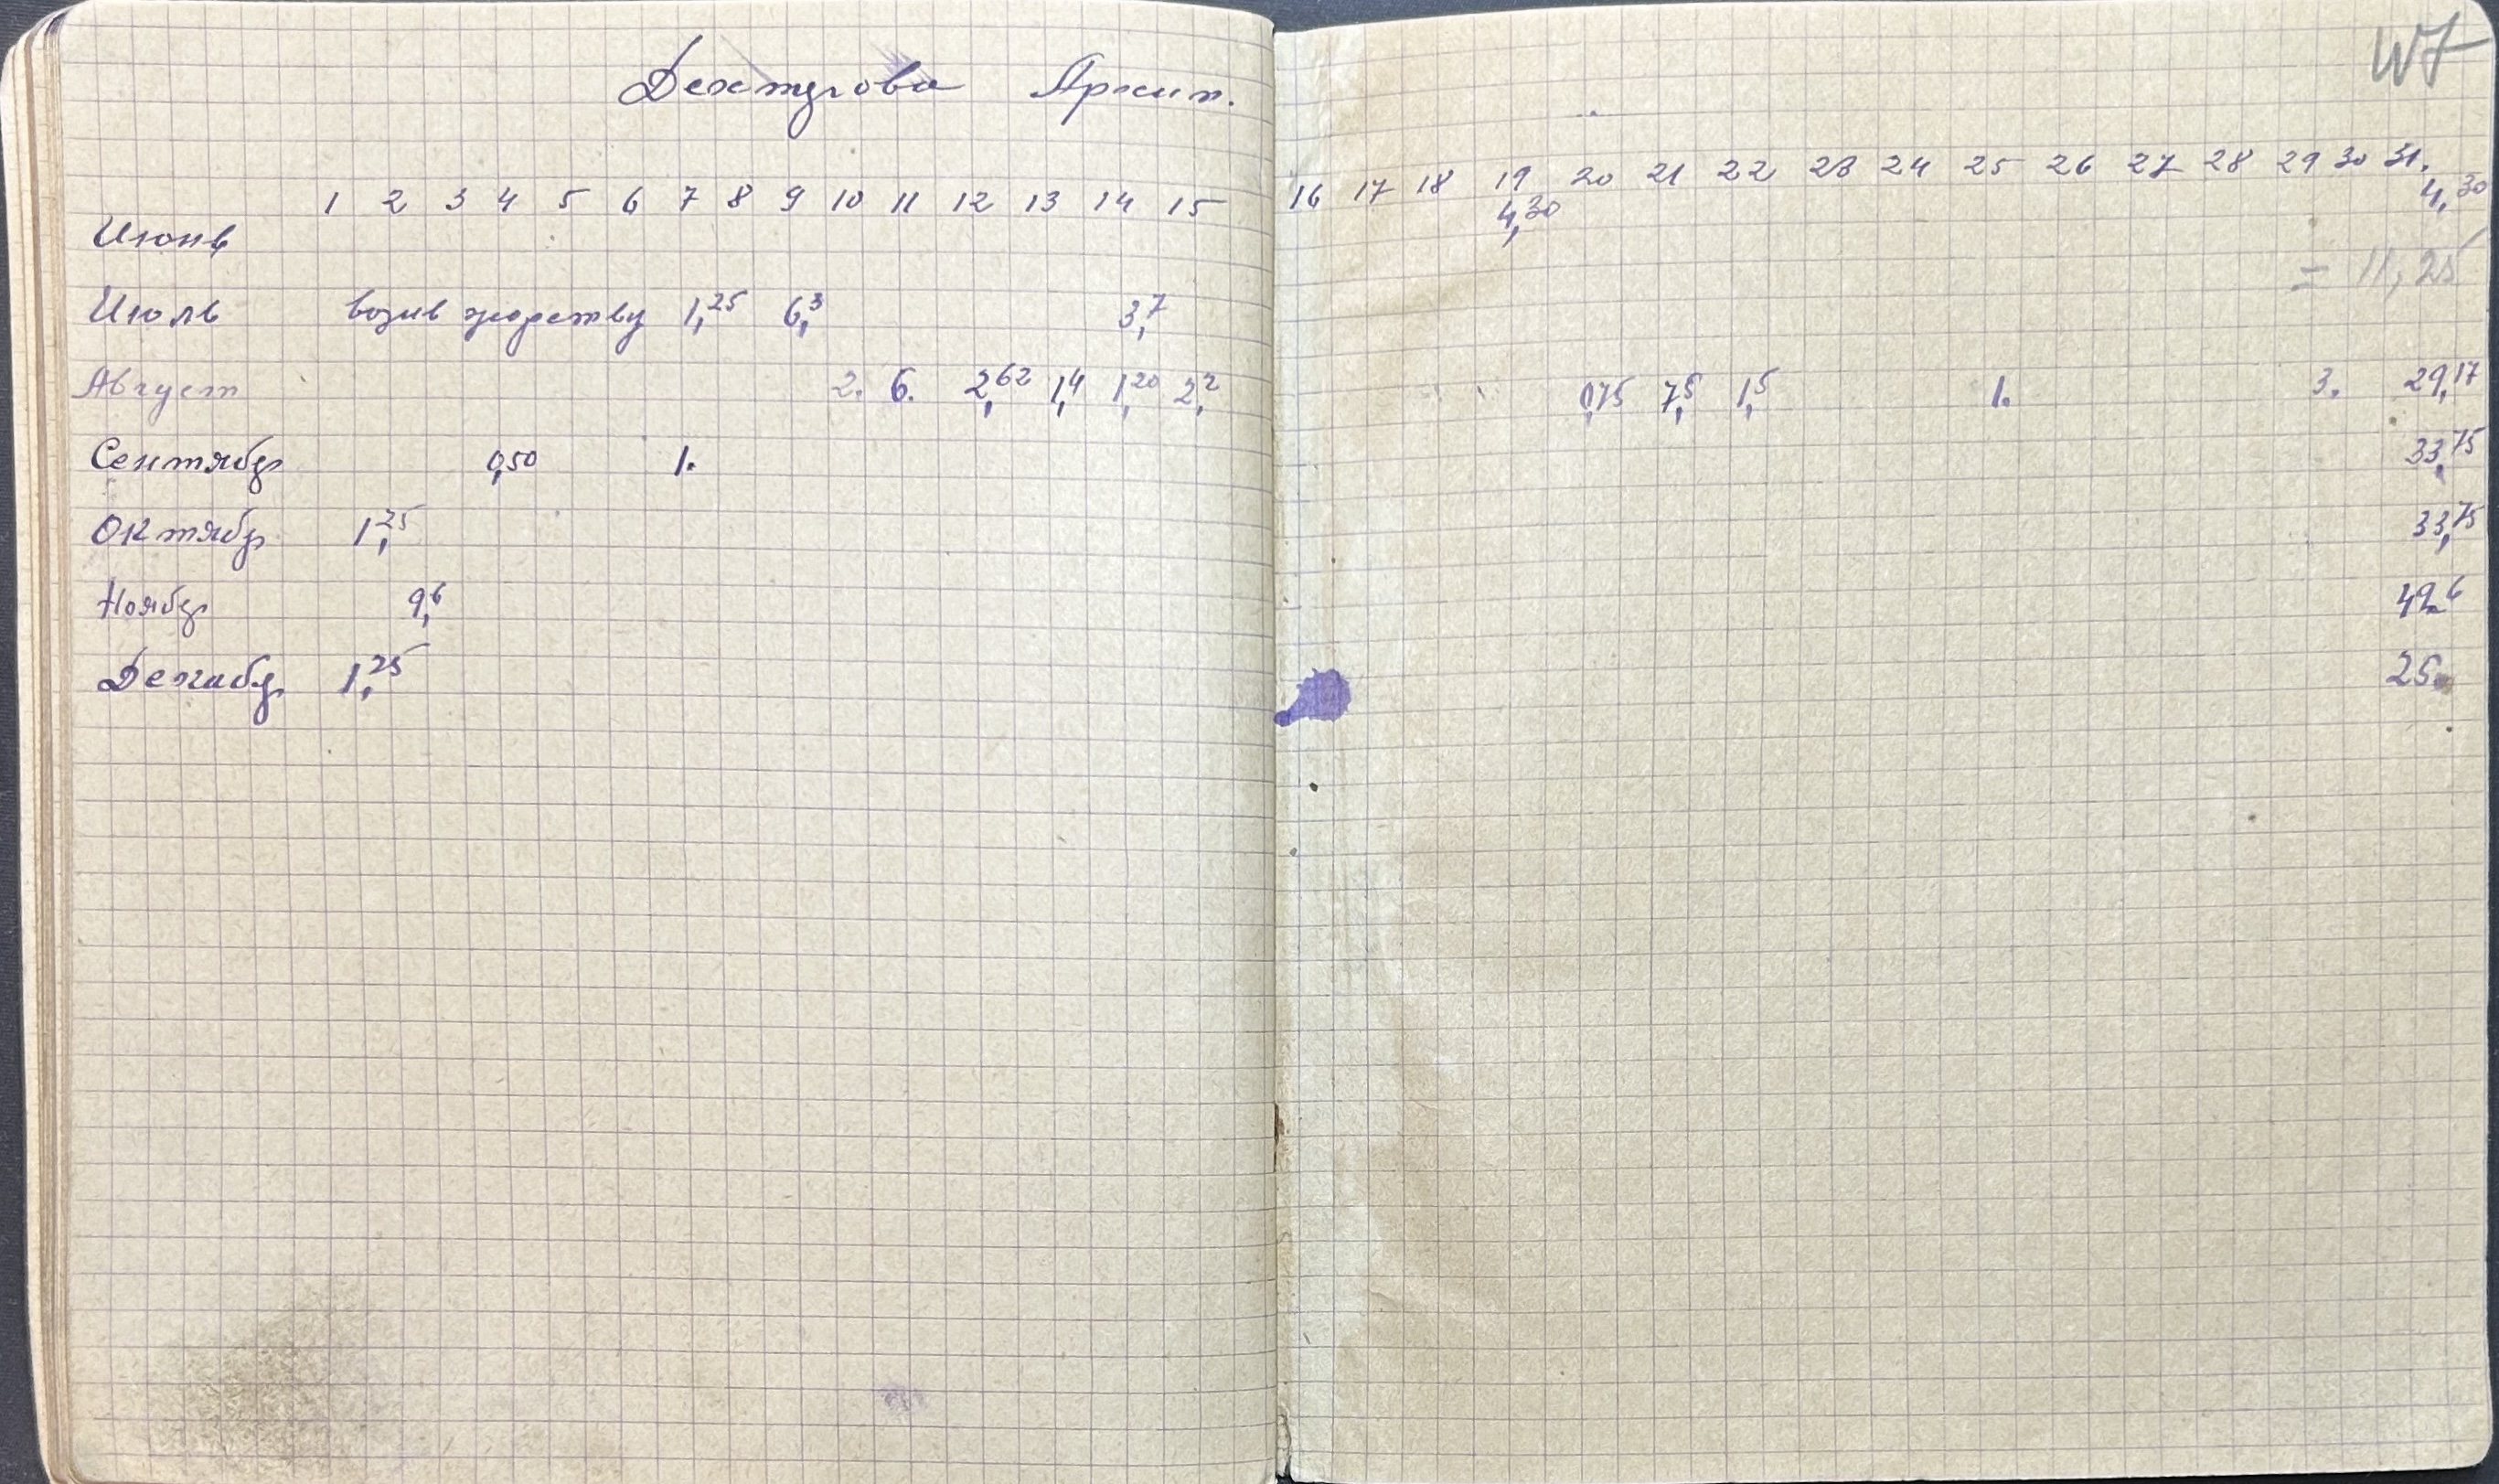 Дехтерова Архип.
1 2 3 4 5 6 7 8 9 10 11 12 13 14 15 16 17 18 19 20 21 22 23 24 25 26 27 28 29 30 31.
Июнь 4,30 4,30
= 11,25
Июль возив 1,25 6,3 3,7
Август 2. 6. 2,62 1,4 1,20 2,2 0,75 7,5 1,5 1. 3. 29,17
Сентябр 0,50 1. 33,75
Октябр 1,25 33,75
Ноябр 9,6 49.6
Декабр 1,25 25.